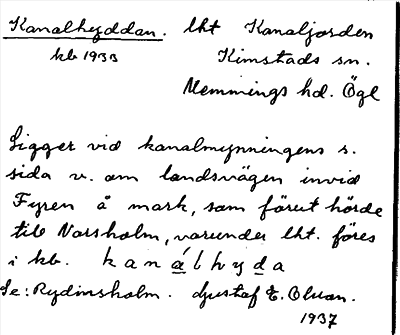 Kanalhyddan. lht Kanaljorden
kb 1933 Kimstads sn.
Memmings hd. Ögl
Ligger vid kanalmynningens s.
sida v. om landsvägen invid
Fyren å mark, som förut hörde
till Norsholm, varunder lht. föres
i kb. kanálhyda
Se: Rydinsholm. Gustaf E. Olsson.
1937